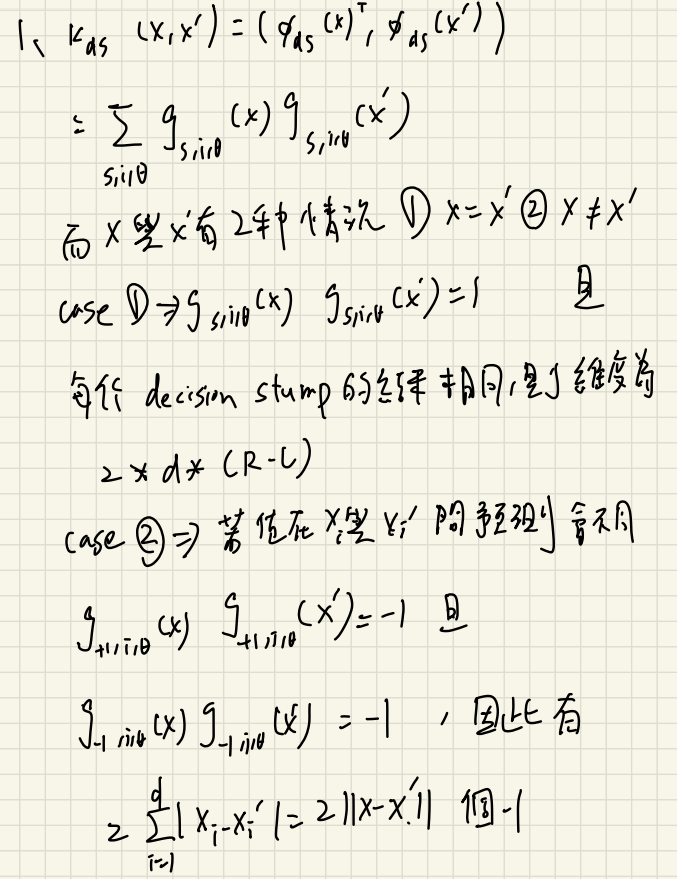 1、 K_ds (x, x') = (φ_ds(x)^T, φ_ds(x'))
= Σ_{s,i,θ} g_{s,i,θ}(x) g_{s,i,θ}(x')
而 x 與 x' 有 2 種情況 ① x = x' ② x ≠ x'
case ① → g_{s,i,θ}(x) g_{s,i,θ}(x') = 1 且
每個 decision stump 的結果相同, 維度為
2 * d * (R-L)
case ② ⇒ 若值在 x_i 與 x_i' 間預測會不同
g_{+1,i,θ}(x) g_{+1,i,θ}(x') = -1 且
g_{-1,i,θ}(x) g_{-1,i,θ}(x') = -1 , 因此有
2 Σ_{i=1}^{d} |x_i - x_i'| = 2||x-x'|| 個 -1